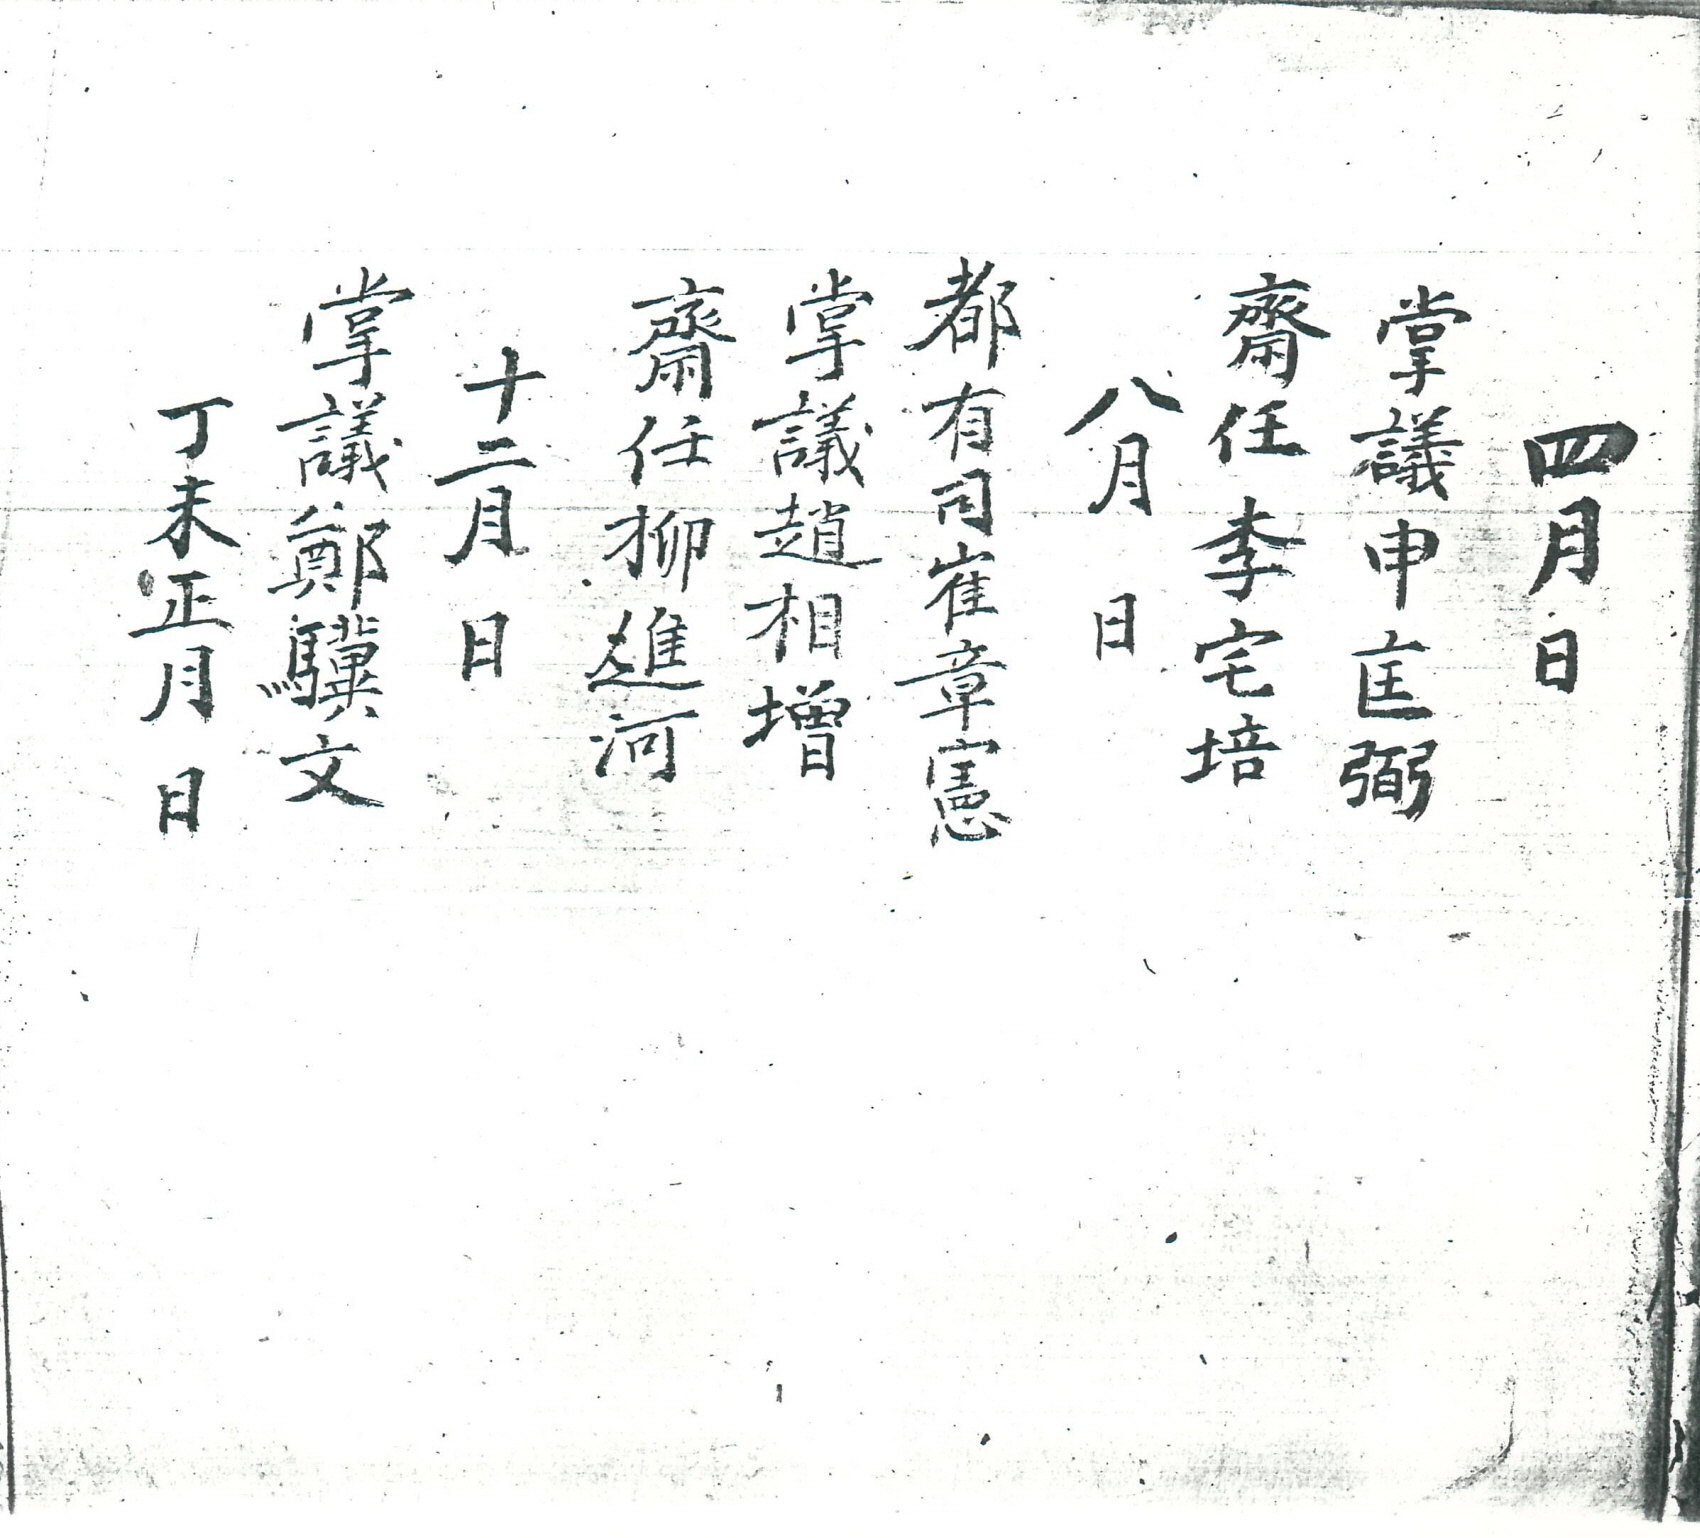 四月日
掌議申匡弼
齋任李宅培
八月 日
都有司崔章憲
掌議趙相增
齋任柳進河
十二月 日
掌議鄭驥文
丁未正月 日